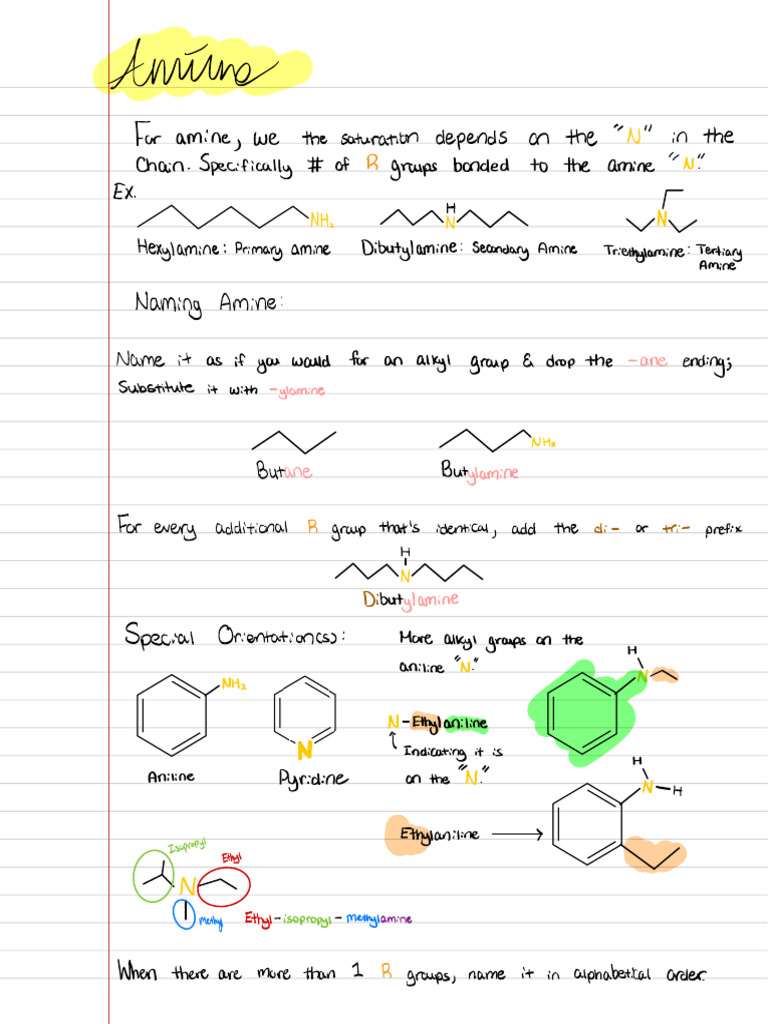 Amine
For amine, we the saturation depends on the "N" in the
Chain. Specifically # of R groups bonded to the amine "N."
Ex.
NH₂
H
N
N
Hexylamine: Primary amine
Dibutylamine: Secondary Amine
Triethylamine: Tertiary
Amine
Naming Amine:
Name it as if you would for an alkyl group & drop the -ane ending;
Substitute it with -ylamine
NH₂
Butane
Butylamine
For every additional R group that's identical, add the di- or tri- prefix
H
N
Dibutylamine
Special Orientation(s):
More alkyl groups on the
aniline "N."
H
N
NH₂
N
N-Ethylaniline
Indicating it is
on the "N."
Aniline
Pyridine
H
N-H
Ethylaniline
Isopropyl
Ethyl
N
Methyl
Ethyl-isopropyl-methylamine
When there are more than 1 R groups, name it in alphabetital order.